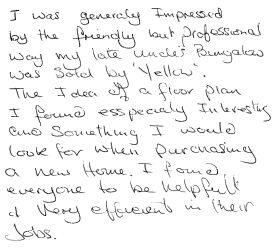 I was generaly Impressed
by the friendly but professional
way my late uncle's Bungalow
was sold by 'Yellow'.
The Idea of a floor plan
I found esspecialy Interesting
and Something I would
look for when purchasing
a new Home. I found
everyone to be helpfull
& Very efficient in their
Jobs.